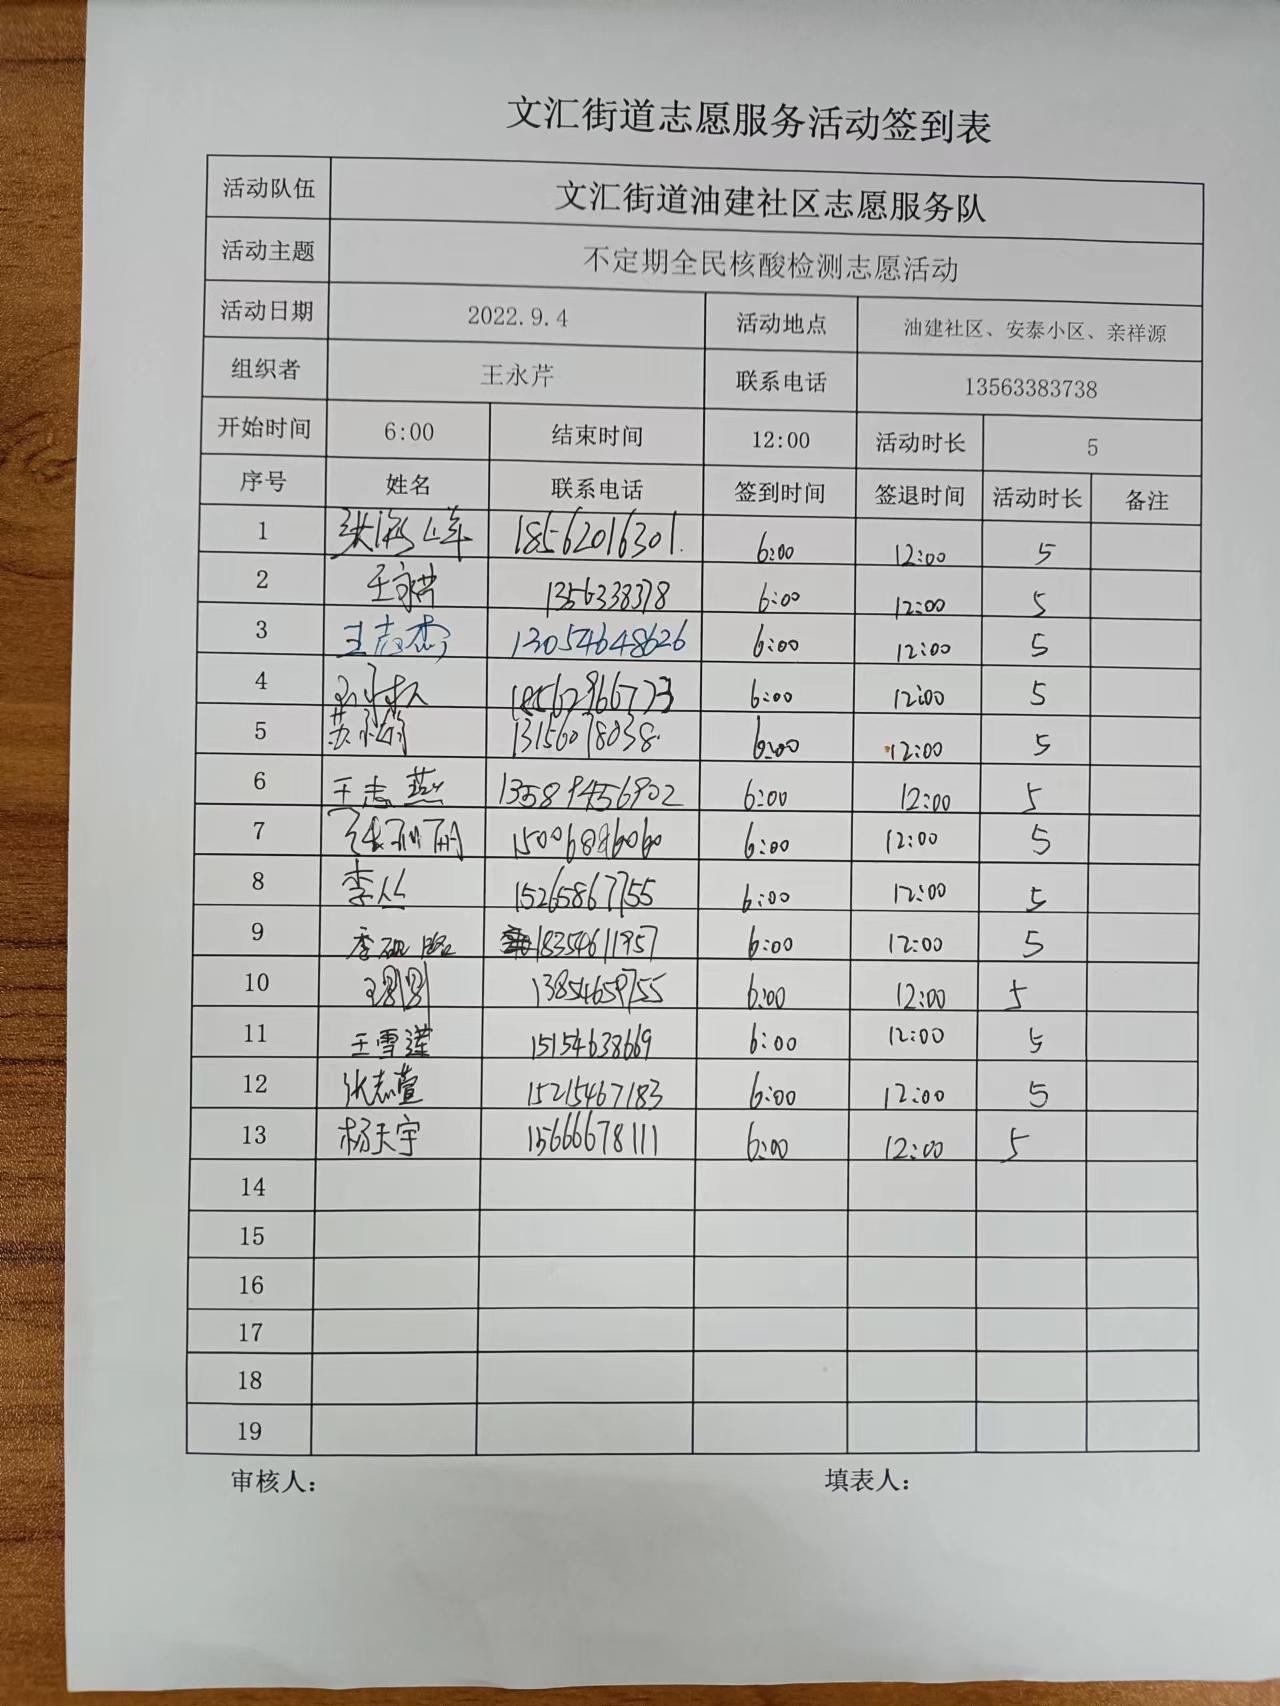 文汇街道志愿服务活动签到表
活动队伍 文汇街道油建社区志愿服务队
活动主题 不定期全民核酸检测志愿活动
活动日期 2022.9.4 活动地点 油建社区、安泰小区、亲祥源
组织者 王永芹 联系电话 13563383738
开始时间 6:00 结束时间 12:00 活动时长 5
序号 姓名 联系电话 签到时间 签退时间 活动时长 备注
1 张海峰 18562016301. 6:00 12:00 5
2 6:00 12:00 5
3 王志杰 13054648626 6:00 12:00 5
4 6:00 12:00 5
5 13156078038 6:00 12:00 5
6 王志燕 13589456902 6:00 12:00 5
7 张丽丽 15006896060 6:00 12:00 5
8 李丛 15265867755 6:00 12:00 5
9 李砚路 18354611957 6:00 12:00 5
10 13854659755 6:00 12:00 5
11 王雪莲 15154638669 6:00 12:00 5
12 张志萱 15215467183 6:00 12:00 5
13 杨天宇 15666678111 6:00 12:00 5
14
15
16
17
18
19
审核人： 填表人：